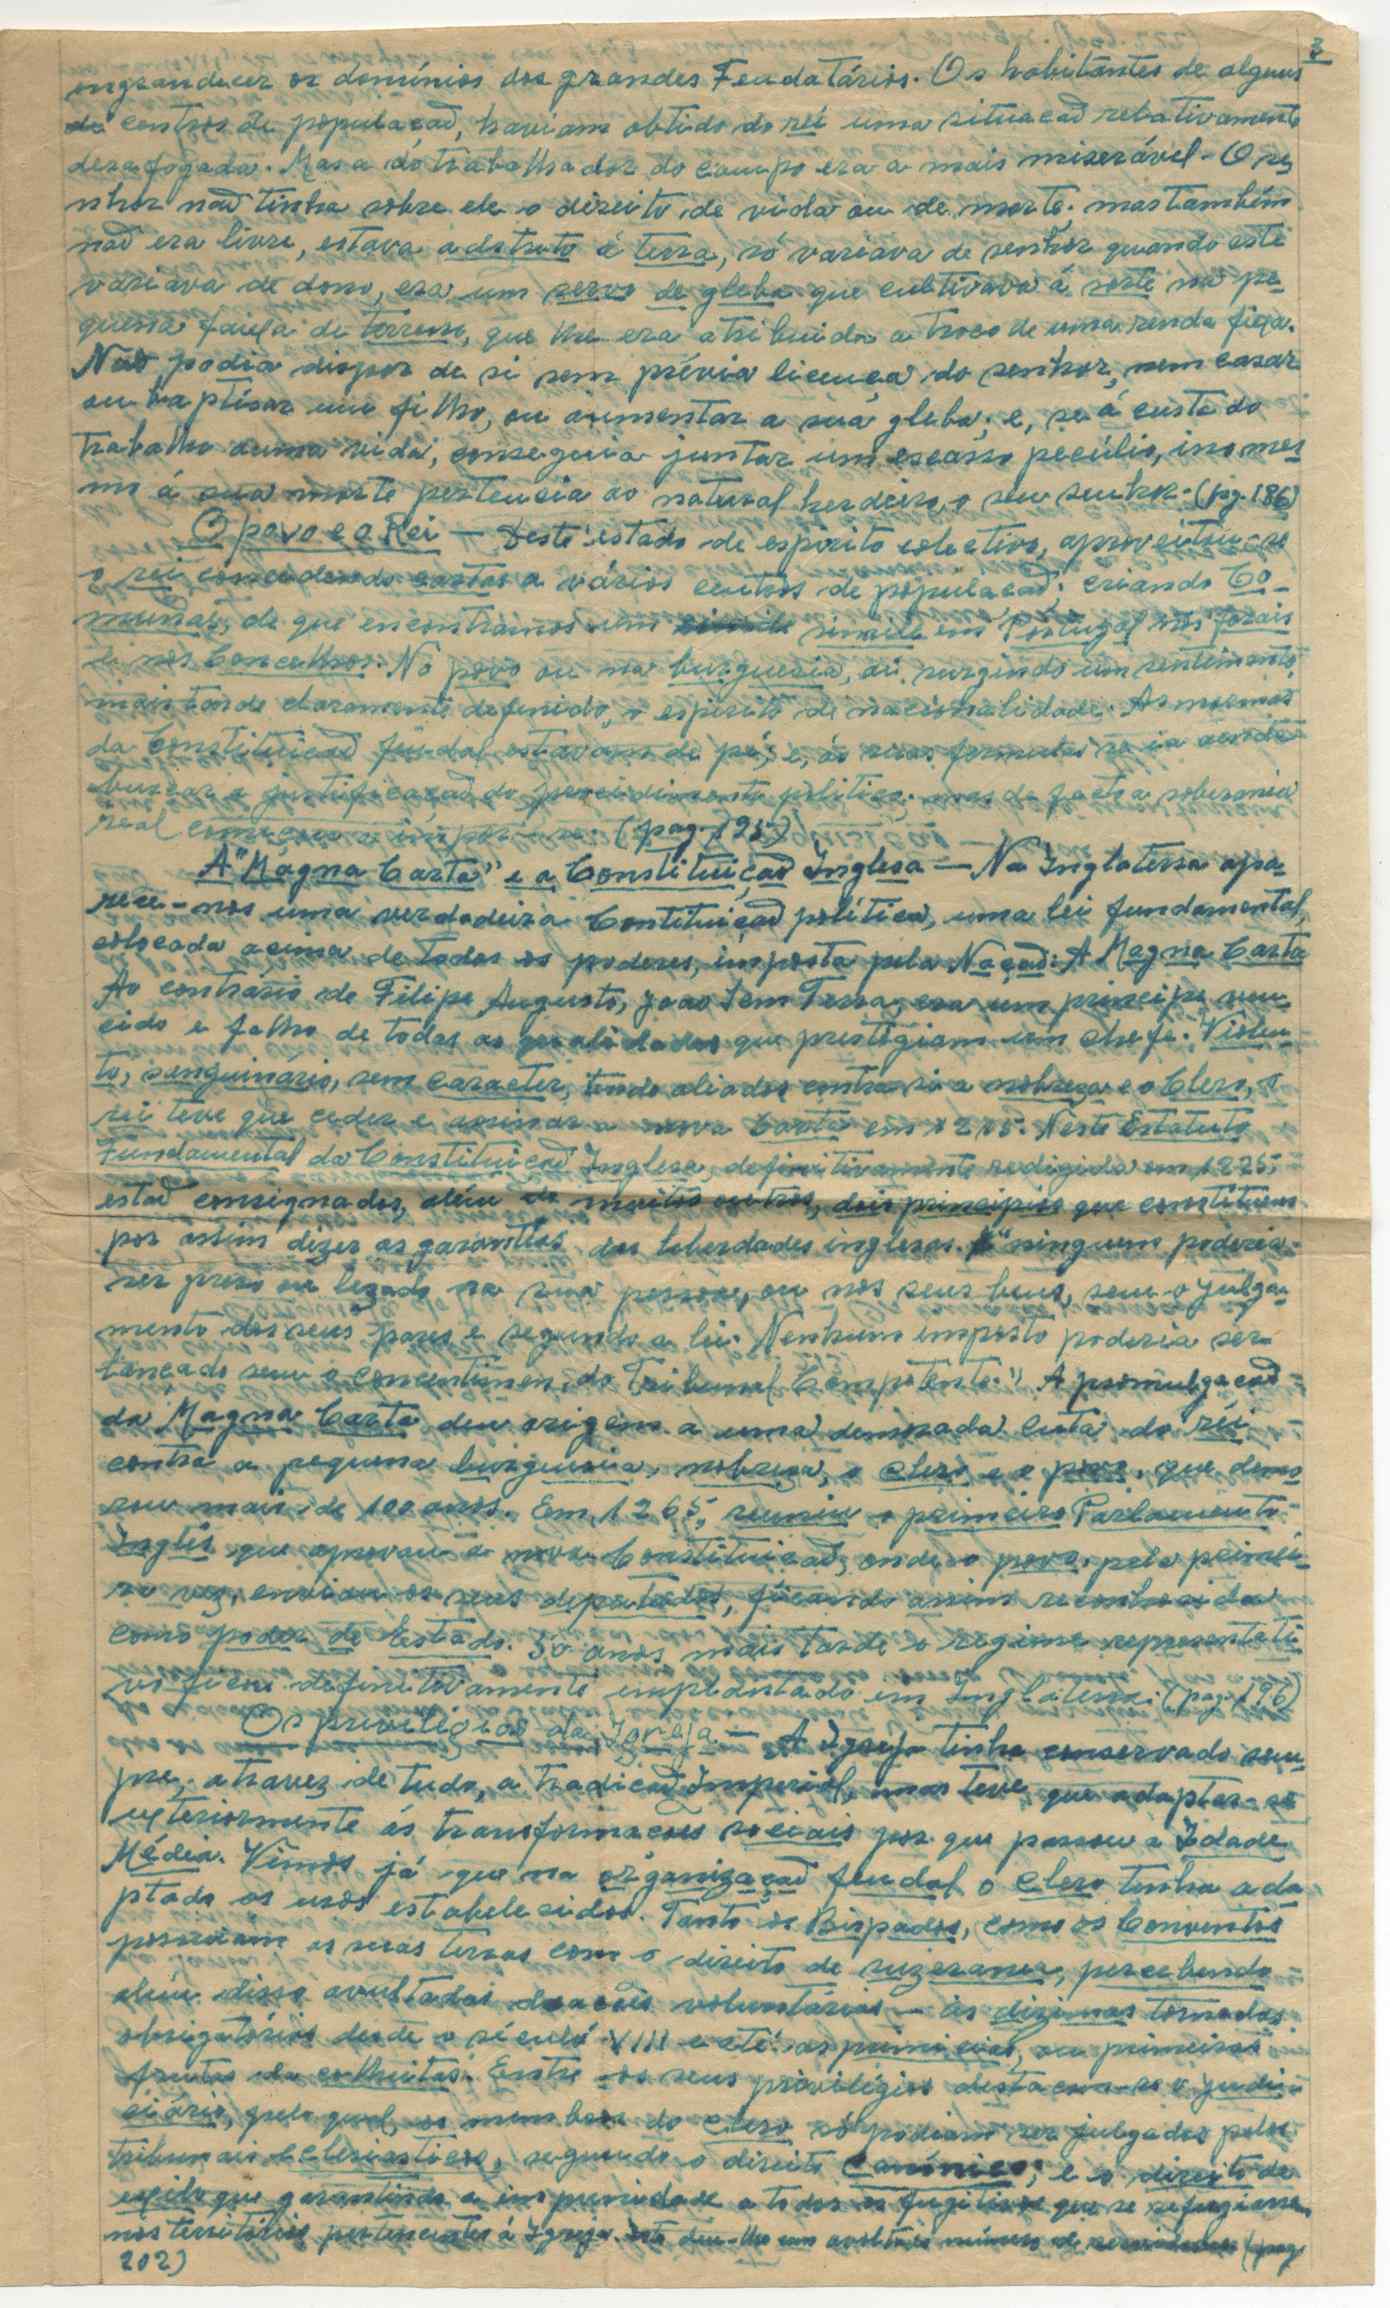 3
engrandecer os domínios dos grandes Feudatários. Os habitantes de alguns
centros de populacaõ, haviam obtido do rei uma situacaõ relativamente
desafogada. Mas a do trabalhador do campo era a mais miserável. O se
nhor naõ tinha sobre ele o direito de vida ou de morte, mas também
naõ era livre, estava adstrito á terra, só variava de senhor quando este
variava de dono, era um servo de gleba que cultivava á sorte na pe
quena faixa de terreno, que lhe era atribuida a troco de uma renda fixa.
Não podia dispor de si sem prévia licença do senhor, nem casar
ou baptisar um filho, ou aumentar a sua gleba; e, se á custa do
trabalho duma vida, conseguia juntar um escasso pecúlio, mes
mo á sua morte pertencia ao natural herdeiro, o seu senhor. (pg. 186)
O povo e o Rei — Deste estado de espirito colectivo, aproveitou-se
o rei concedendo cartas a vários centros de populacaõ; criando Co-
munas, de que encontramos um simile em Portugal nos forais
e nos Concelhos. No povo ou na burguesia, ai, surgindo um sentimento,
mais tarde claramente definido, o espirito de nacionalidade. As normas
da Constituicaõ feudal estavam de pé, e, ás suas formulas se ia ainda
buscar a justificaçaõ do procedimento politico, mas de facto a soberania
real começava a impor-se. (pag. 195)
A "Magna Carta" e a Constituição Inglesa — Na Inglaterra apa-
rece-nos uma verdadeira Contituiçaõ política, uma lei fundamental,
colocada acima de todos os poderes, imposta pela Naçaõ: A Magna Carta
Ao contrário de Filipe Augusto, João Sem Terra, era um principe ven
cido e falho de todas as qualidades que prestigiam um chefe. Violen-
to, sanguinário, sem caracter, tendo aliados contra si a nobreza e o Clero, o
rei teve que ceder e assinar a nova Carta em 1215. Neste Estatuto
Fundamental da Constituiçaõ Inglesa, definitivamente redigida em 1225,
estaõ consignados, além de muitos outros, dois principios que constituem
por assim dizer as garantias das liberdades inglesas. "ninguem poderia
ser preso ou lezado na sua pessoa, ou nos seus bens, sem o julga-
mento dos seus pares e segundo a lei. Nenhum imposto poderia ser
lançado sem o concentimen. do Tribunal Competente." A promulgacaõ
da Magna Carta deu origem a uma demorada luta do rei
contra a pequena burguesia, nobreza, o clero e o povo, que demo
rou mais de 100 anos. Em 1265, reuniu o primeiro Parlamento
Inglês que aprovou a nova Constituicaõ, onde o povo, pela primei-
ra vez, enviou os seus deputados, ficando assim reconhecida
como poder de Estado. 50 anos mais tarde o regime representati
vo ficou definitivamente implantado em Inglaterra. (pag. 196)
Os privilégios da Igreja — A Igreja tinha conservado sem-
pre, atravez de tudo, a tradicaõ Imperial, mas teve que adaptar-se
exteriormente ás transformacoes sociais por que passou a Idade
Média. Vimos já que na organizaçaõ feudal o clero tinha ada
ptado os usos estabelecidos. Tanto os Bispados, como os Conventos
possuiam as suas terras com o direito de suzerania, percebendo
além disso avultadas doacões voluntárias — as dizimas tornadas
obrigatórias desde o século VIII e até as primicias, ou primeiros
frutos da colheitas. Entre os seus privilégios destacava-se o judi-
ciário, pelo qual os membros do clero só podiam ser julgados pelos
tribunais eclesiásticos, segundo o direito Canónico; e o direito de
exilo que garantindo a impunidade a todos os fugitivos que se refugiassem
nos territórios pertencentes á Igreja. Isto deu-lhe um avultado número de (pag.
202)